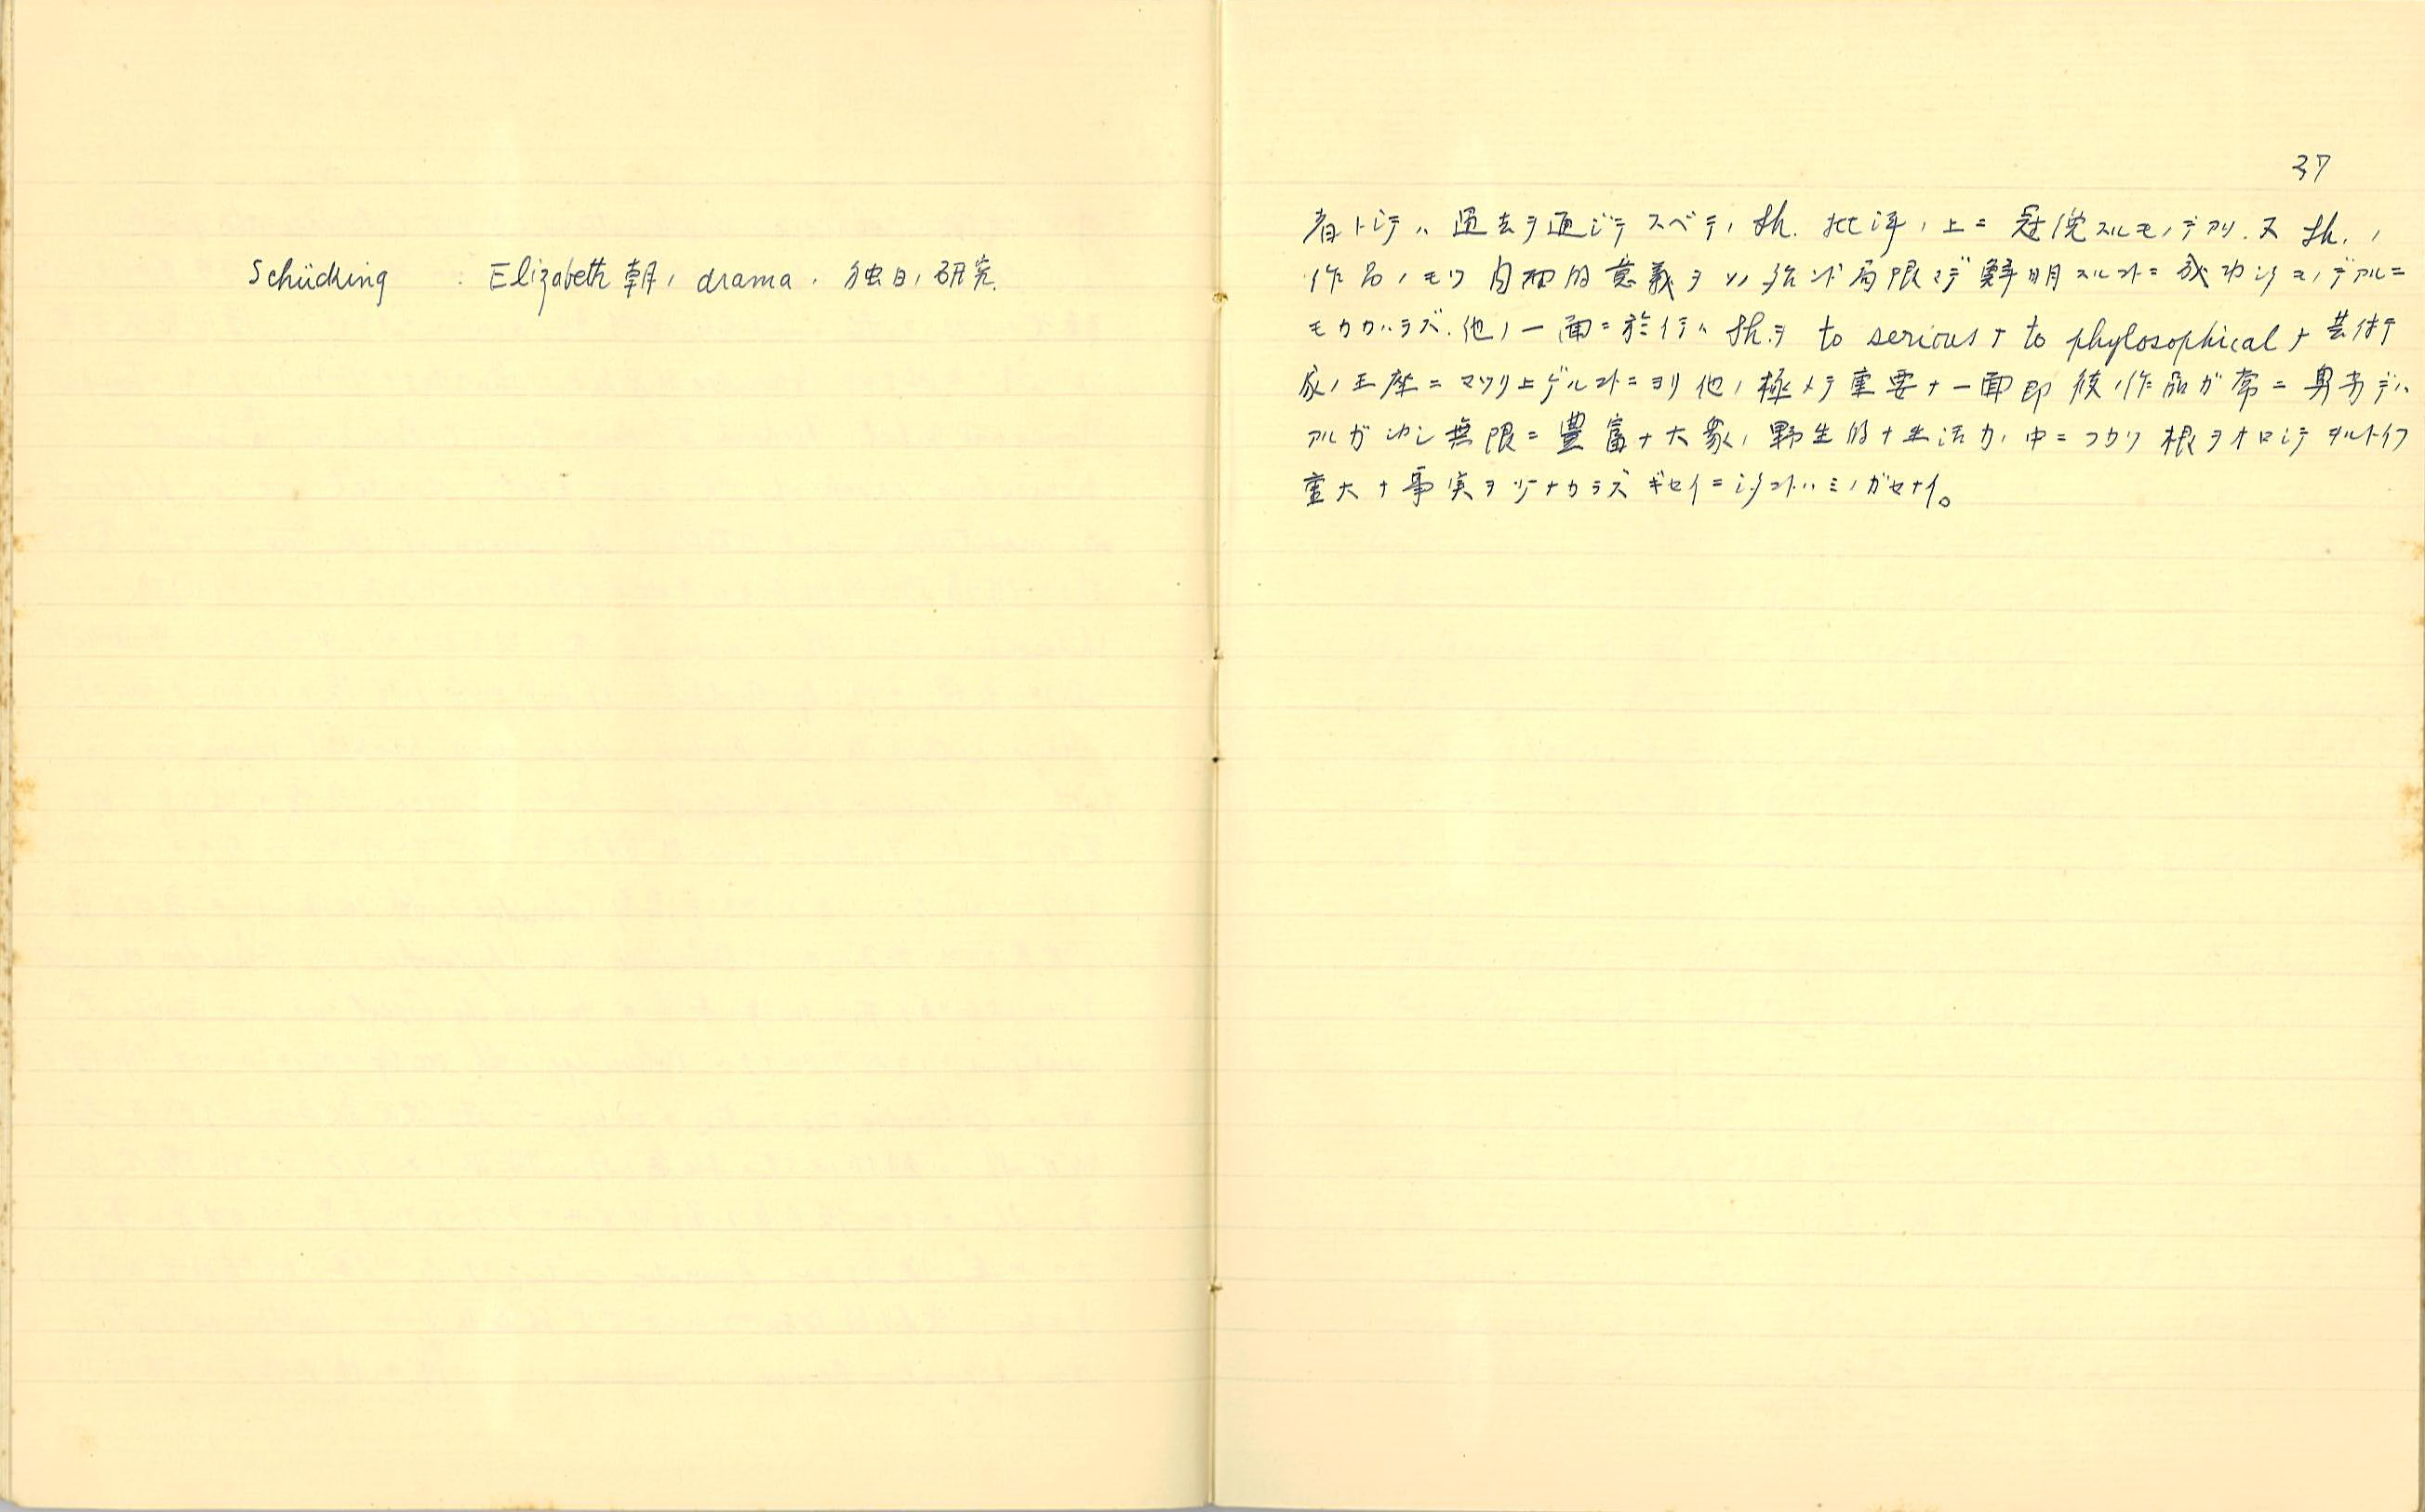 Schücking : Elizabeth 朝ノ drama . 独日ノ研究.
37
者トシテハ 過去ヲ通ジテスベテノ Sh. 批評ノ上ニ 冠絶スルモノデアリ. 又 Sh. ノ
作品ノモツ 内面的意義ヲソノ殆ンド局限マデ 解明スルコトニ 成功シタモノデアルニ
モカカハラズ. 他ノ一面ニ於イテハ Sh.ヲ to serious ナ to phylosophical ナ 芸術
家ノ王座ニ マツリ上ゲルコトニヨリ 他ノ極メテ重要ナ一面即 彼ノ作品ガ常ニ デハ
アルガ シカシ無限ニ豊富ナ大衆ノ野生的ナ生活力ノ中ニ フカク根ヲオロシテヰルトイフ
重大ナ事実ヲ少ナカラズ ギセイニシタコトハ ミノガセナイ。